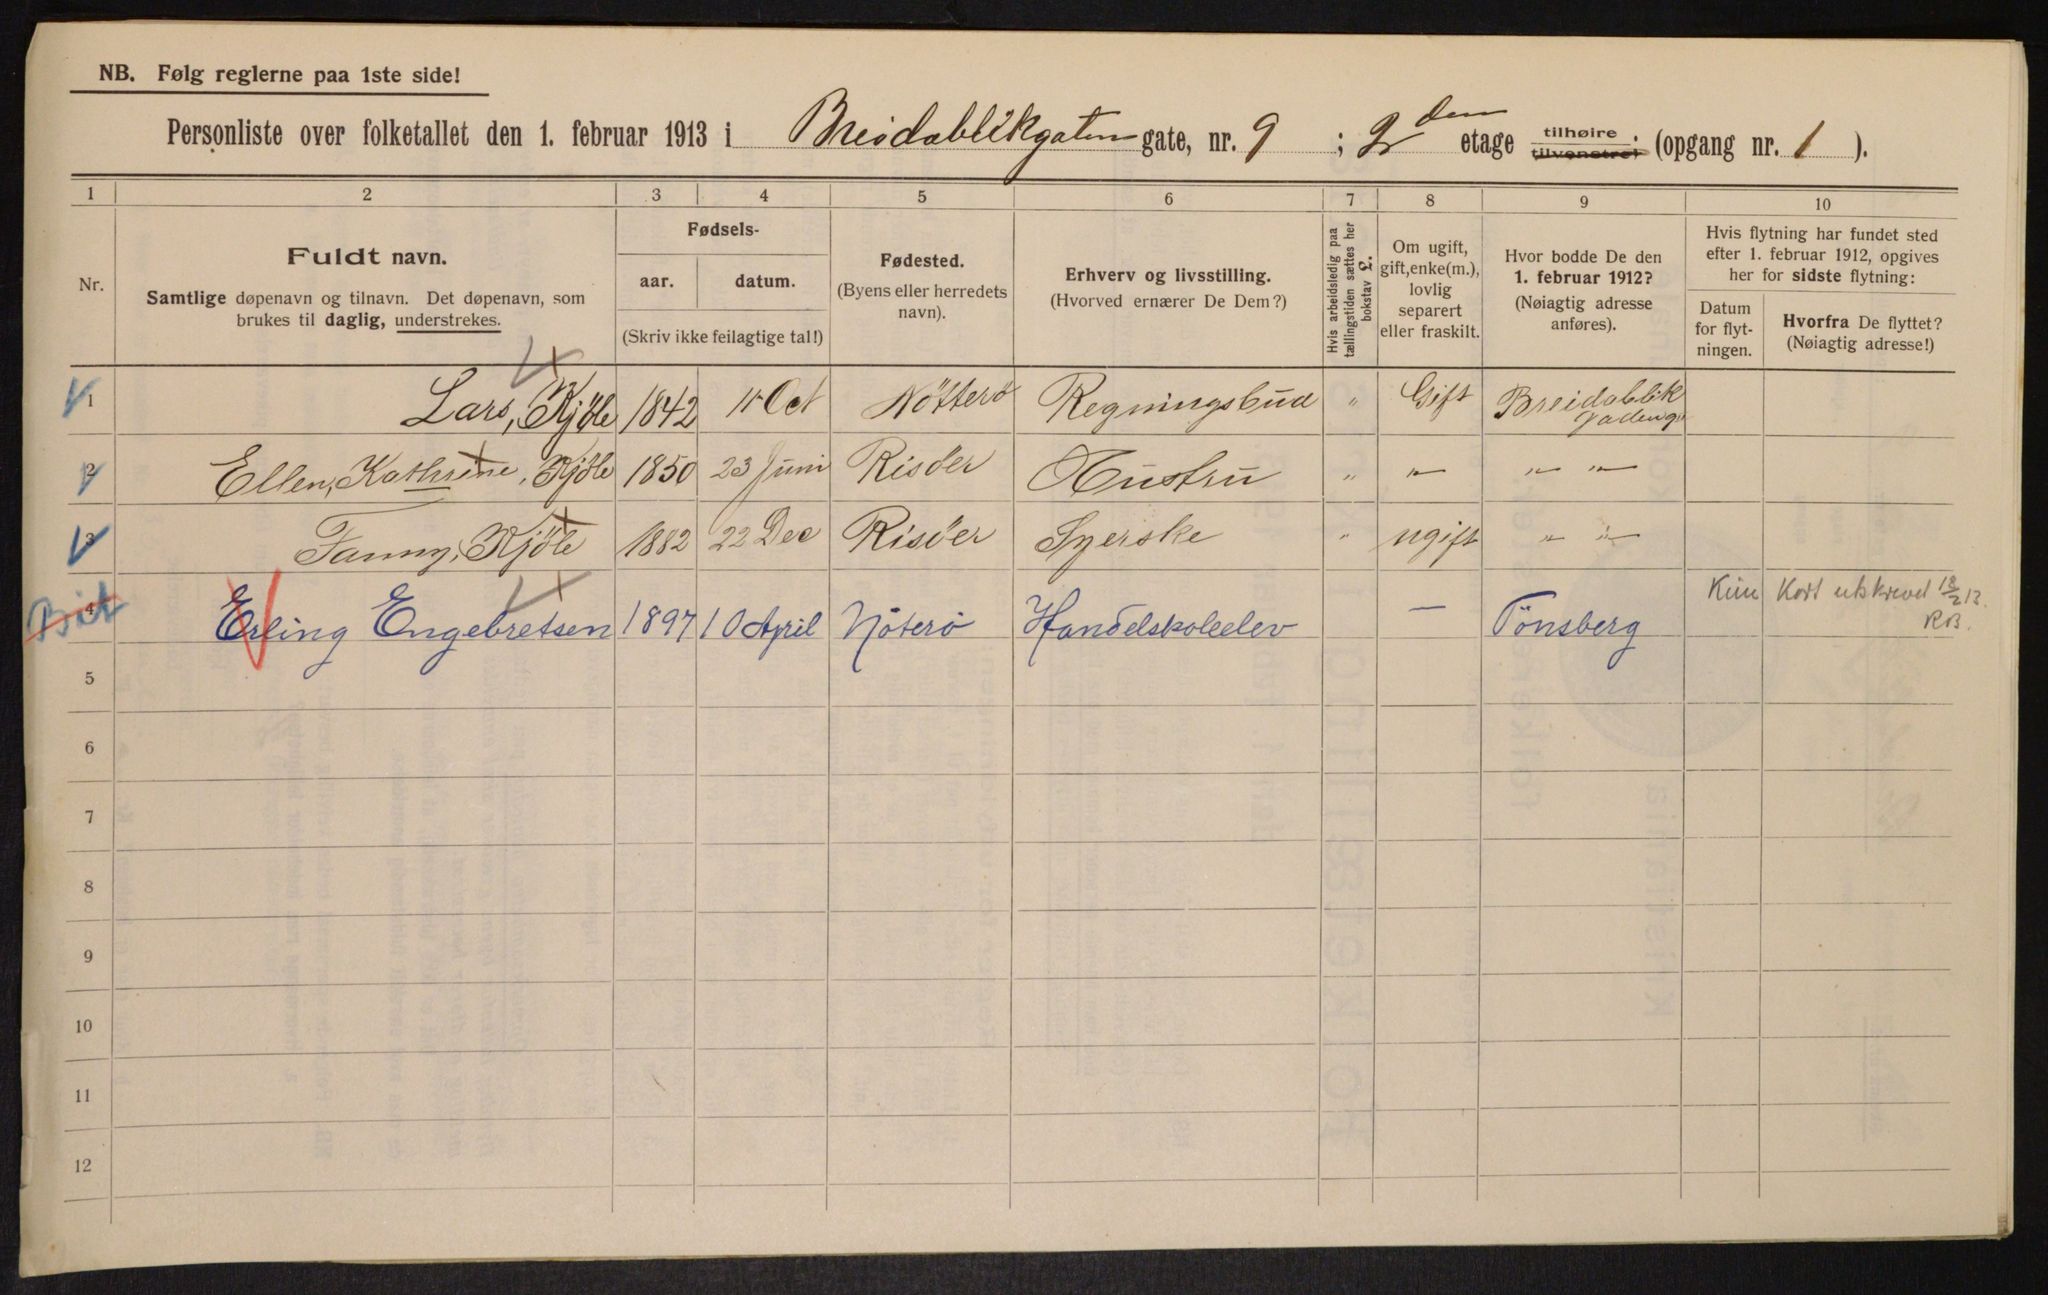 NB. Følg reglerne paa 1ste side!
Personliste over folketallet den 1. februar 1913 i Breidablikgaten gate, nr. 9 ; 2den etage tilhøire tilvenstre: (opgang nr. 1 ).
1 2 3 4 5 6 7 8 9 10
Nr.
Fuldt navn.
Samtlige døpenavn og tilnavn. Det døpenavn, som
brukes til daglig, understrekes.
Fødsels-
aar. datum.
(Skriv ikke feilagtige tal!)
Fødested.
(Byens eller herredets
navn).
Erhverv og livsstilling.
(Hvorved ernærer De Dem?)
Hvis arbeidsledig paa
tællingstiden sættes her
bokstav L.
Om ugift,
gift, enke(m.),
lovlig
separert
eller fraskilt.
Hvor bodde De den
1. februar 1912?
(Nøiagtig adresse
anføres).
Hvis flytning har fundet sted
efter 1. februar 1912, opgives
her for sidste flytning:
Datum
for flyt-
ningen.
Hvorfra De flyttet?
(Nøiagtig adresse!)
1 Lars, Kjöle 1842 Oct Nötterö Regningsbud " Gift Breidablik
2 Ellen, Kathrine, Kjöle 1850 23 Juni Risöer Hustru " " " "
3 Fanny, Kjöle 1882 22 Dec Risöer Syerske " ugift " "
4 Erling Engebretsen 1897 10 April Nöterö Handelskoleelev — Tönsberg Kort utskrevet 18/2 13.
RB.
5
6
7
8
9
10
11
12